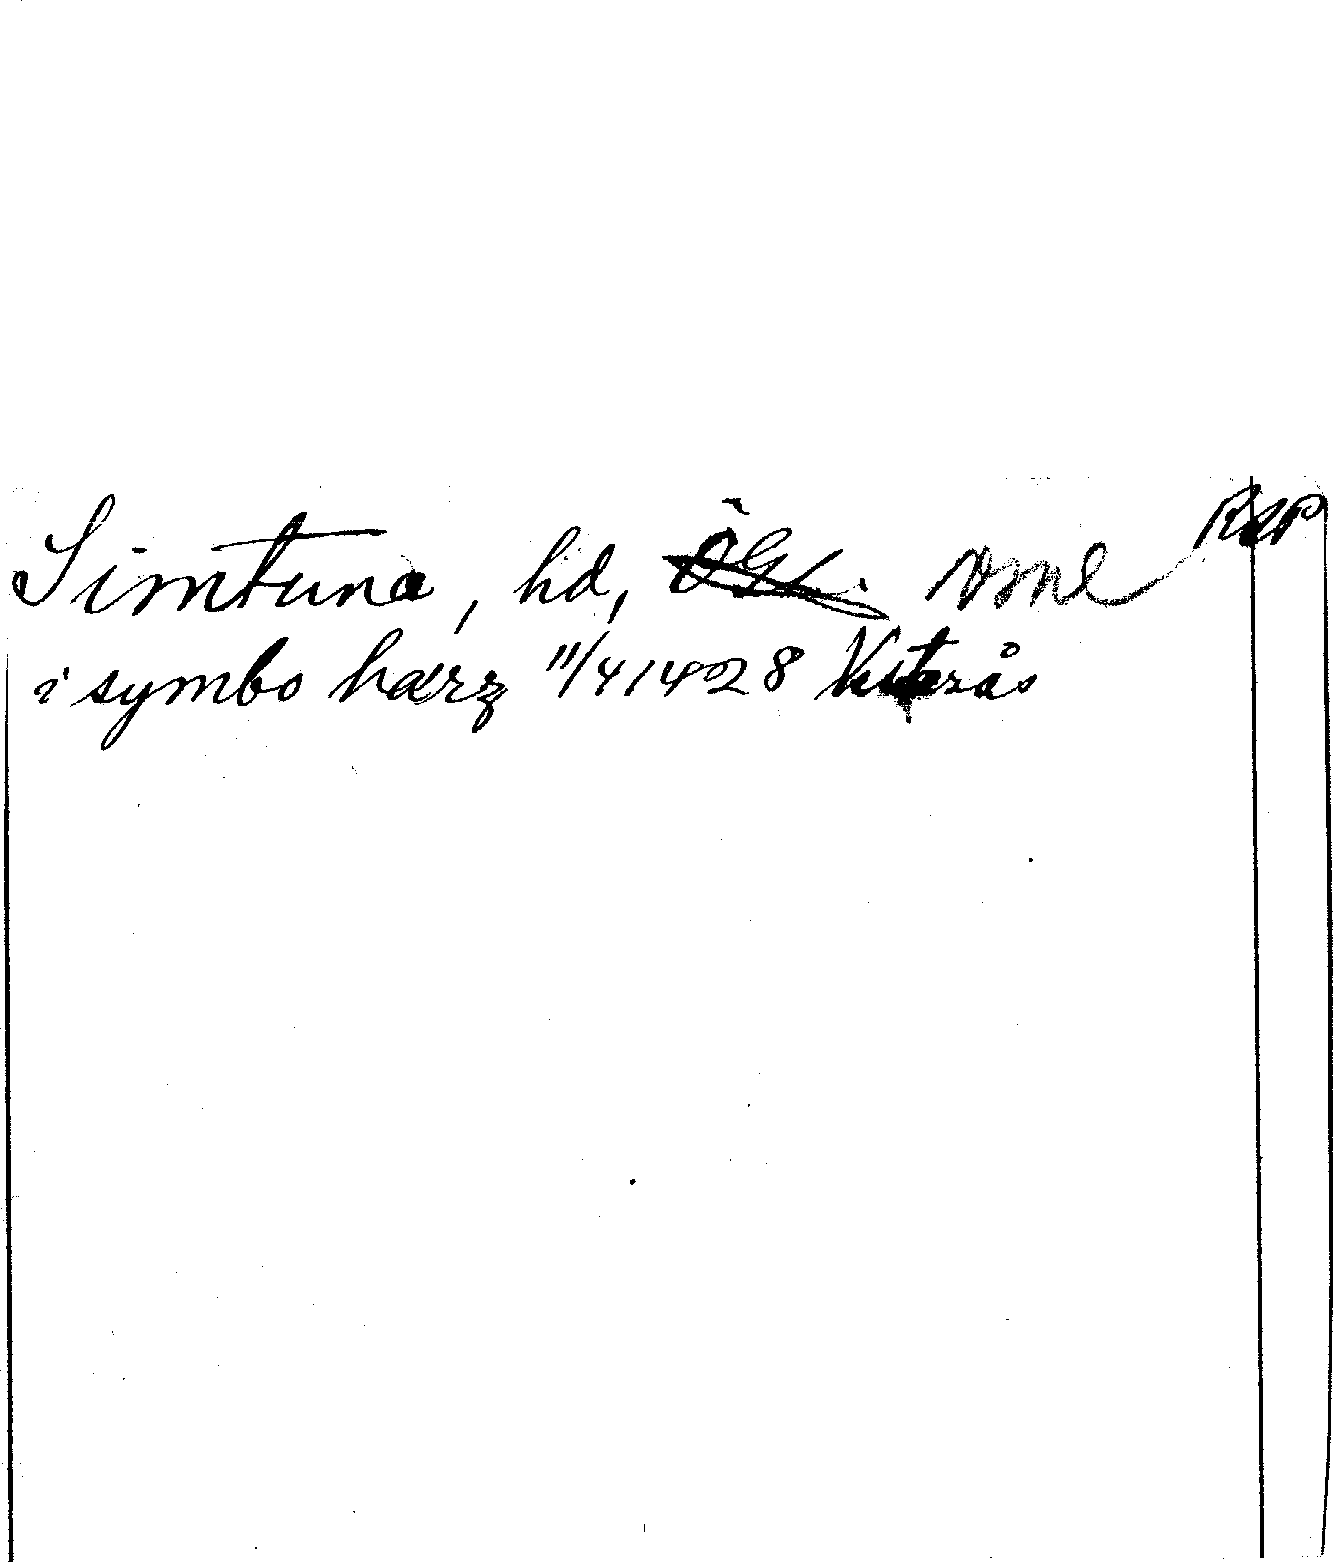 Simtuna, hd, ÖGL. vml RSP
i symbo hærz 11/4 1428 Västerås